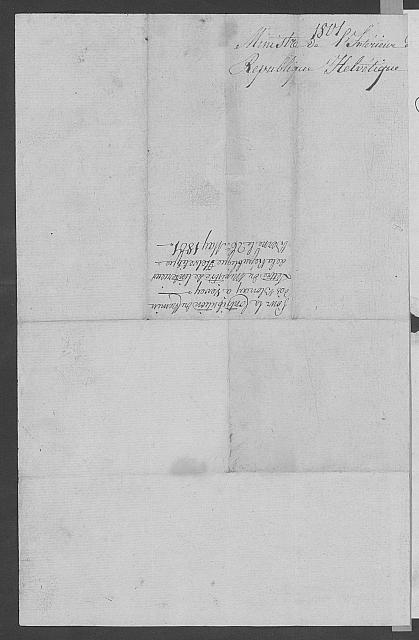 1801
Ministre de l'Intérieur
Republique Helvétique
Pour la Contribution du Chemin
de Blonay a Vevey
Lettre du Ministre de l'interieur
de la Republique Helvetique
Berne le 26 May 1801